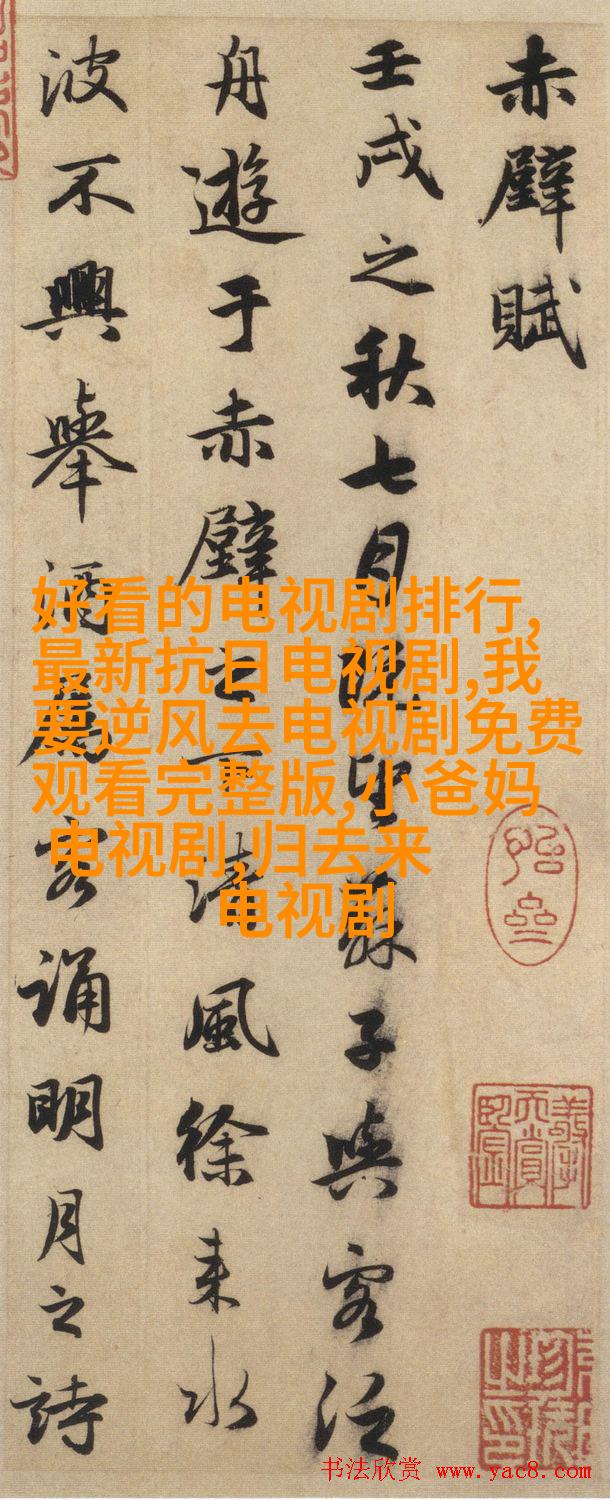 赤壁賦
壬戌之秋七月既望蘇子與客泛
舟遊于赤壁之下清風徐来水
波不興舉酒屬客誦明月之詩
好看的电视剧排行,
最新抗日电视剧,我
要逆风去电视剧免费
观看完整版,小爸妈
电视剧,归去来
电视剧
书法欣赏 www.yac8.com